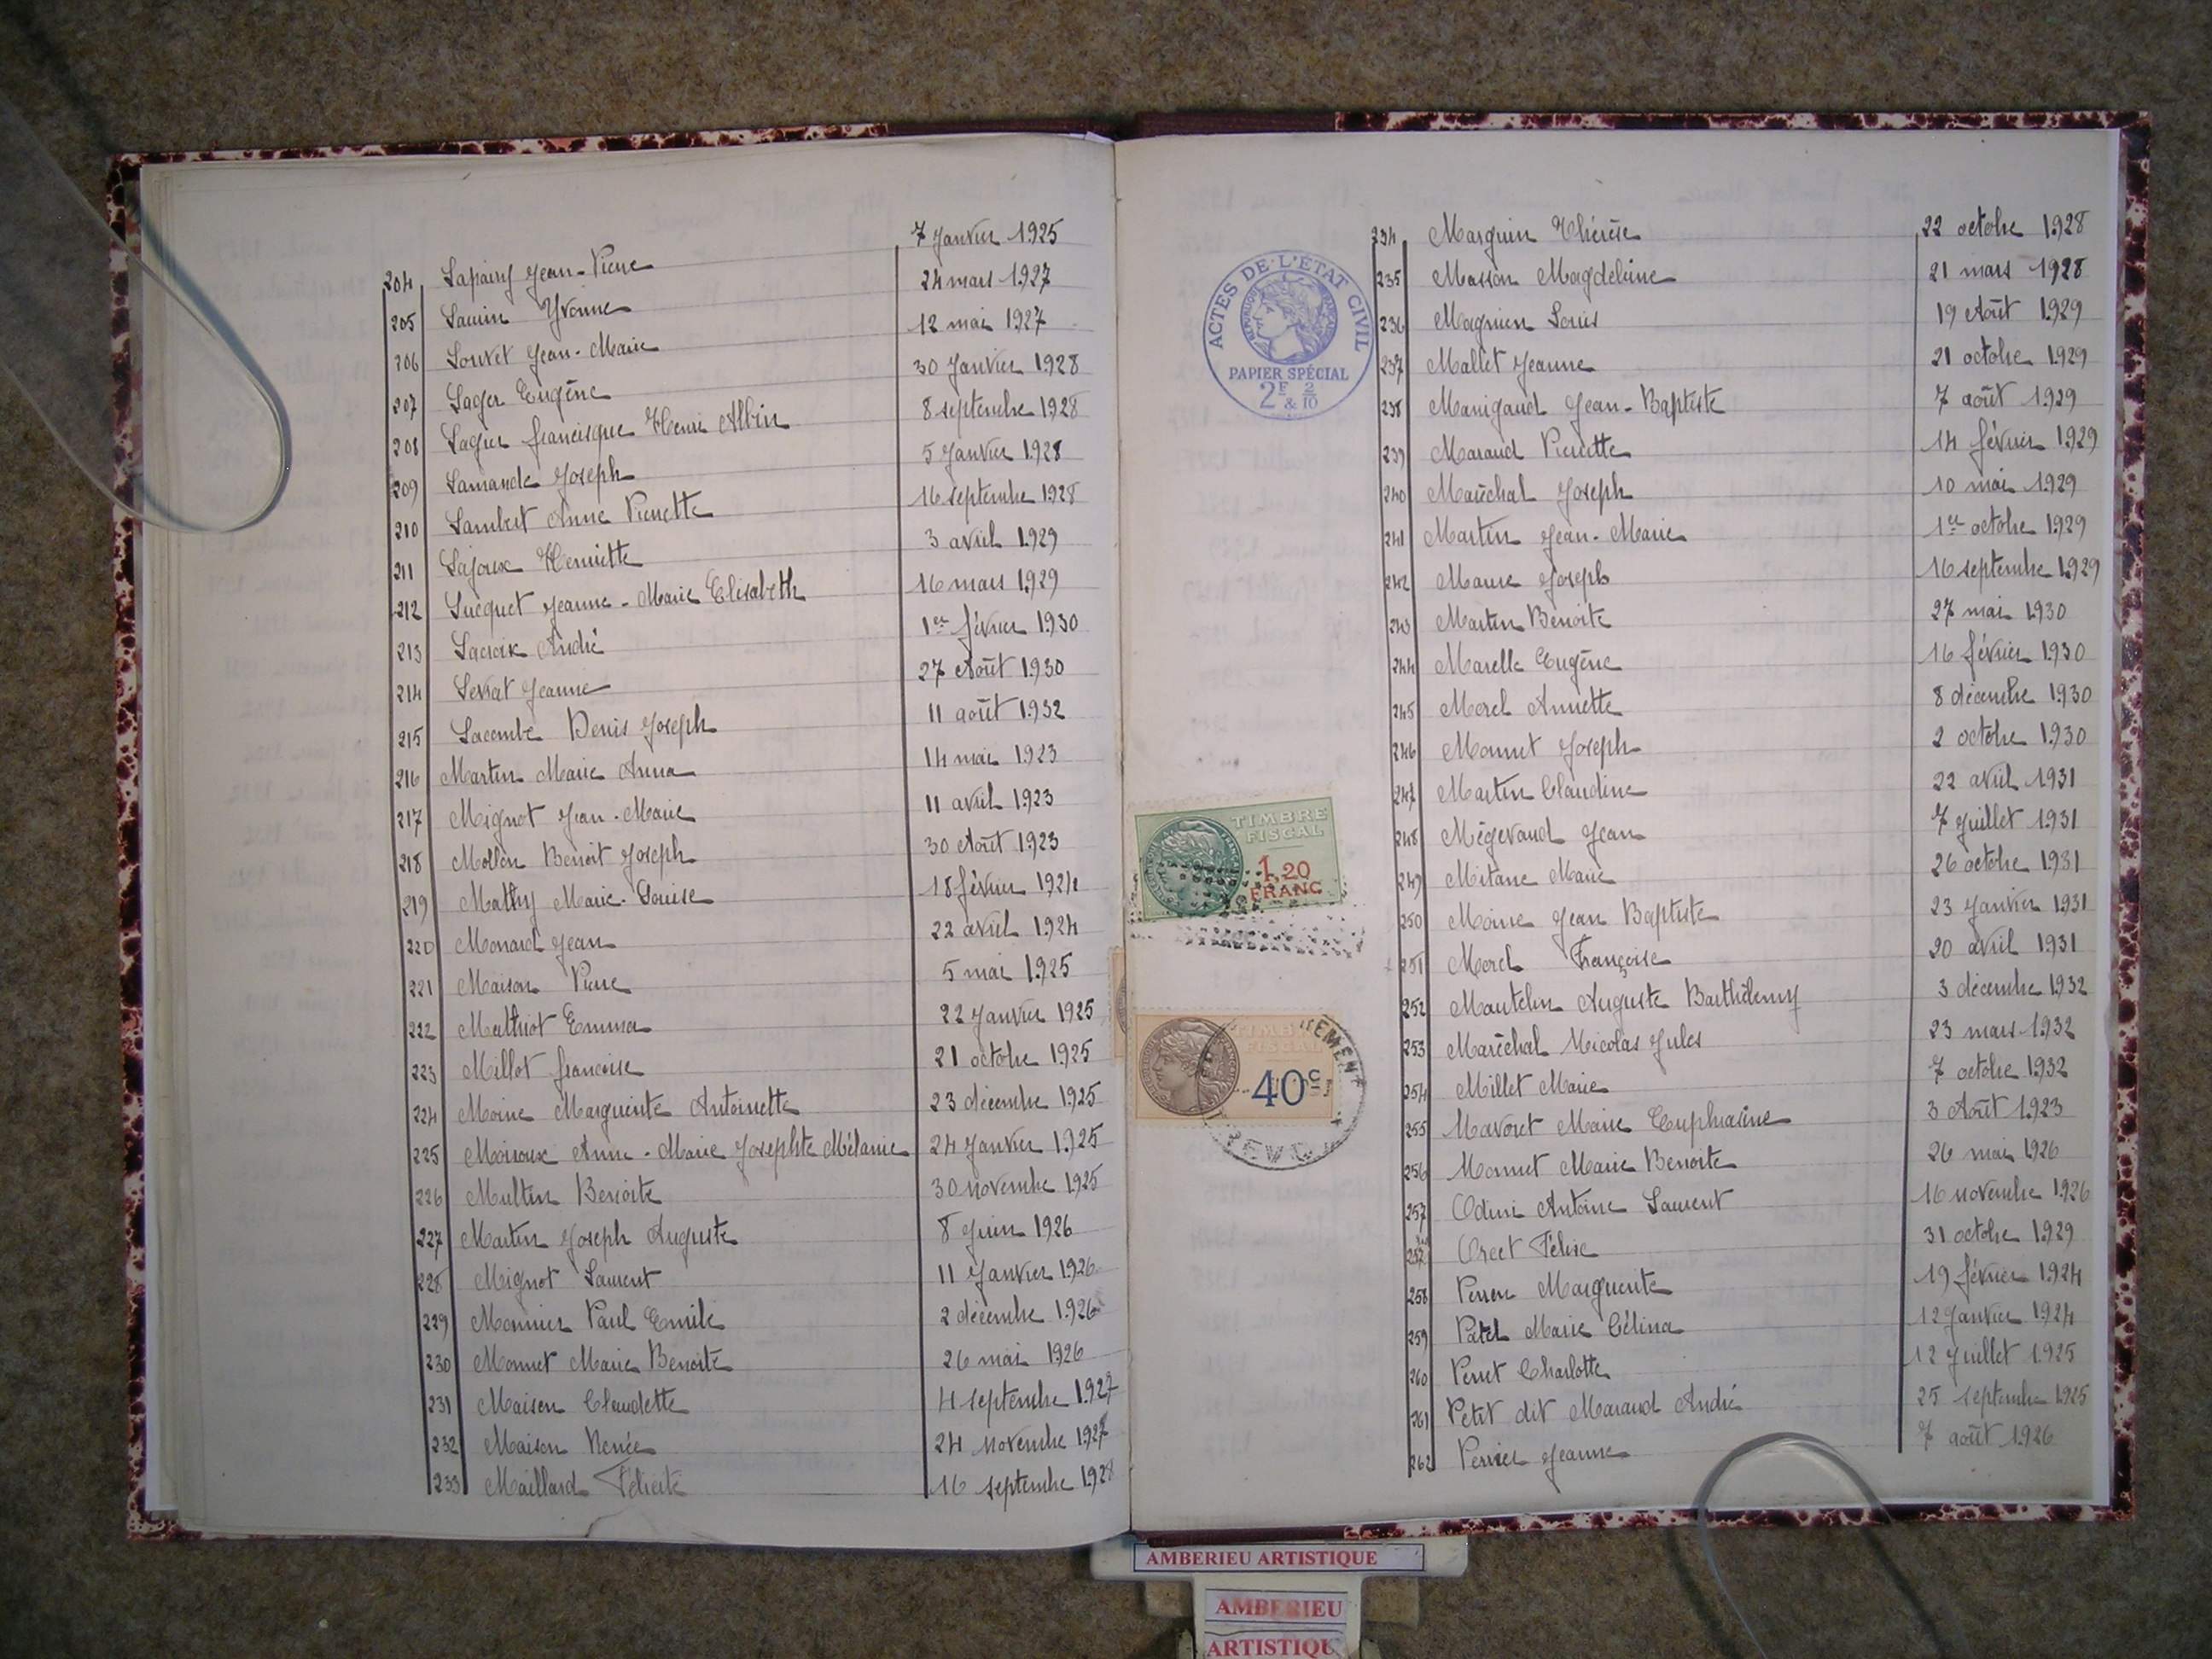 204 Lapainy Jean-Pierre 7 Janvier 1925
205 Yvonne 24 mars 1927
206 Louvet Jean-Marie 12 mai 1927
207 Lager Eugène 30 Janvier 1928
208 Lagier francisque Henri Albin 8 septembre 1928
209 Lamande Joseph 5 Janvier 1928
210 Lambert Anne Pierrette 16 septembre 1928
211 Lajoux Henriette 3 avril 1929
212 Lucquet Jeanne-Marie Elisabeth 16 mars 1929
213 Lacroix André 1er février 1930
214 Levrat Jeanne 27 Août 1930
215 Lacombe Denis Joseph 11 août 1932
216 Martin Marie Anna 14 mai 1923
217 Mignot Jean-Marie 11 avril 1923
218 Mollon Benoit Joseph 30 Août 1923
219 Mathy Marie-Louise 18 février 1924
220 Monard Jean 22 avril 1924
221 Maison Pierre 5 mai 1925
222 Mathiot Emma 22 Janvier 1925
223 Millot francoise 21 octobre 1925
224 Moine Marguerite Antoinette 23 décembre 1925
225 Moiroux Anne-Marie Josephte Mélanie 24 Janvier 1925
226 Multin Benoite 30 novembre 1925
227 Martin Joseph Auguste 8 Juin 1926
228 Mignot Laurent 11 Janvier 1926
229 Monnier Paul Emile 2 décembre 1926
230 Monnet Marie Benoite 26 mai 1926
231 Maison Claudette 4 septembre 1927
232 Maison Renée 24 novembre 1927
233 Maillard Félicité 16 septembre 1928
ACTES DE L'ÉTAT CIVIL
RÉPUBLIQUE FRANÇAISE
PAPIER SPÉCIAL
2F & 2/10
TIMBRE
FISCAL
1,20
FRANC
TIMBRE
FISCAL
40c
234 Marguin Thérèse 22 octobre 1928
235 Masson Magdeleine 21 mars 1928
236 Magnien Louis 19 Août 1929
237 Mallet Jeanne 21 octobre 1929
238 Manigand Jean-Baptiste 7 août 1929
239 Maraud Pierrette 14 février 1929
240 Maréchal Joseph 10 mai 1929
241 Martin Jean-Marie 1er octobre 1929
242 Joseph 16 septembre 1929
243 Martin Benoite 27 mai 1930
244 Marelle Eugène 16 février 1930
245 Morel Annette 8 décembre 1930
246 Monnet Joseph 2 octobre 1930
247 Martin Claudine 22 avril 1931
248 Mégevand Jean 7 Juillet 1931
249 Mitane Marie 26 octobre 1931
250 Moine Jean Baptiste 23 Janvier 1931
251 Morel Françoise 20 avril 1931
252 Mautelin Auguste Barthélemy 3 décembre 1932
253 Maréchal Nicolas Jules 23 mars 1932
254 Millet Marie 7 octobre 1932
255 Navoret Marie Euphrasine 3 Août 1923
256 Monnet Marie Benoite 26 mai 1926
257 Odini Antoine Laurent 16 novembre 1926
257 Orcet Félix 31 octobre 1929
258 Perren Marguerite 19 février 1924
259 Patel Marie Célina 12 Janvier 1924
260 Perret Charlotte 12 Juillet 1925
261 Petit dit Maraud André 25 septembre 1925
262 Perrier Jeanne 7 août 1926
AMBERIEU ARTISTIQUE
AMBERIEU
ARTISTIQU